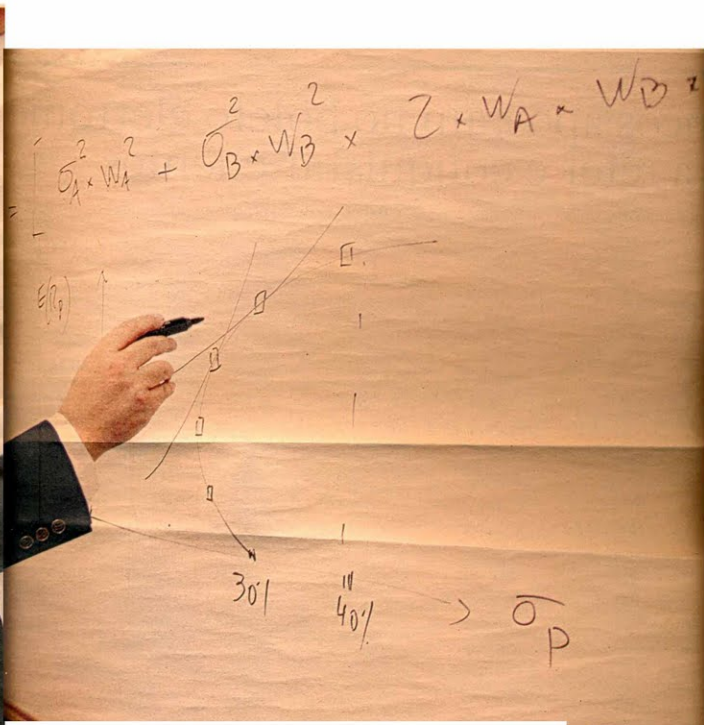 = [ σ_A² × W_A² + σ_B² × W_B² × 2 × W_A × W_B ×
E(R_p)
30%
40%
σ_p